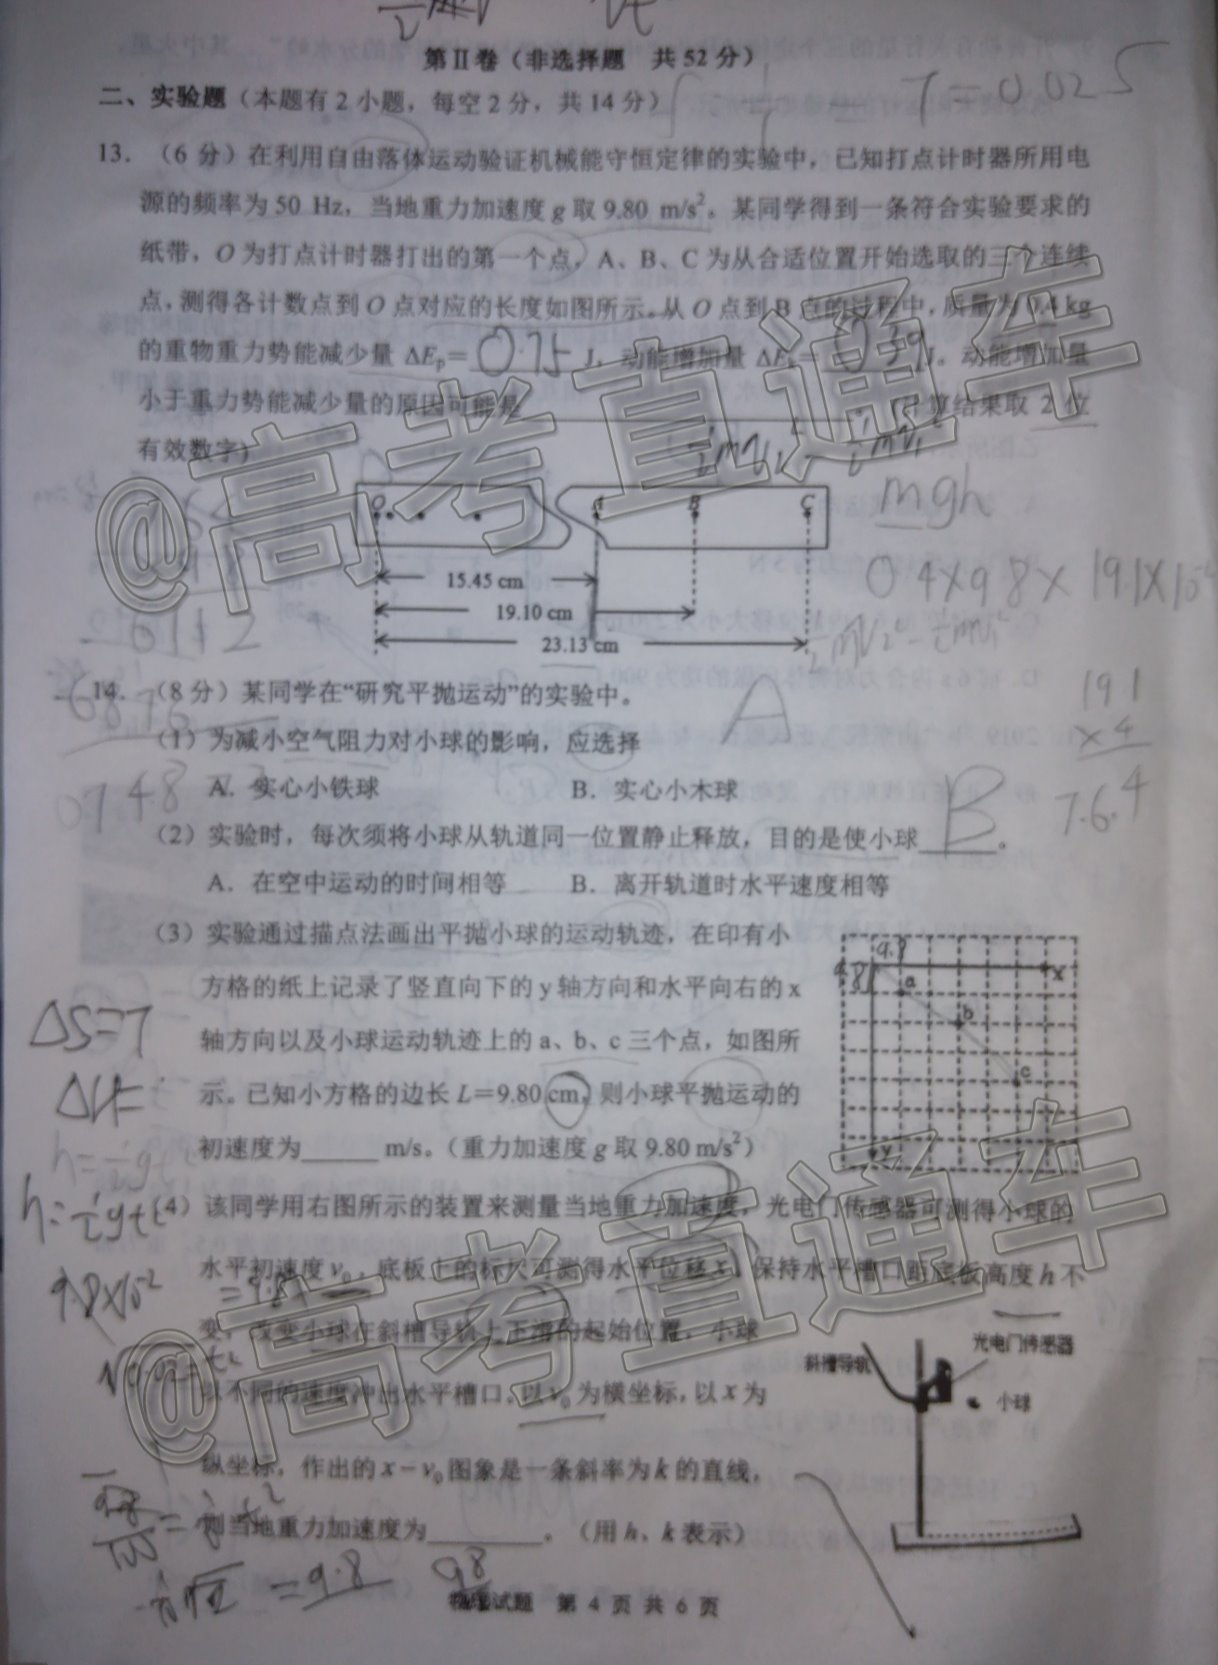 第Ⅱ卷（非选择题 共52分）
二、实验题（本题有2小题，每空2分，共14分）
T=0.02S
13．（6分）在利用自由落体运动验证机械能守恒定律的实验中，已知打点计时器所用电
源的频率为50 Hz，当地重力加速度g取9.80 m/s²。某同学得到一条符合实验要求的
纸带，O为打点计时器打出的第一个点，A、B、C为从合适位置开始选取的三个连续
点，测得各计数点到O点对应的长度如图所示。从O点到B点的过程中，质量为0.4 kg
的重物重力势能减少量 ΔEp= 0.75 J，动能增加量 ΔEk= J。动能增加量
小于重力势能减少量的原因可能是 计算结果取2位
有效数字）
mgh
O A B C
15.45 cm
19.10 cm
23.13 cm
0.4×9.8×19.1×10
6112
14．（8分）某同学在“研究平抛运动”的实验中。
（1）为减小空气阻力对小球的影响，应选择 A
19.1
×4
7.6.4
A．实心小铁球 B．实心小木球
（2）实验时，每次须将小球从轨道同一位置静止释放，目的是使小球 B 。
A．在空中运动的时间相等 B．离开轨道时水平速度相等
（3）实验通过描点法画出平抛小球的运动轨迹，在印有小
方格的纸上记录了竖直向下的y轴方向和水平向右的x
轴方向以及小球运动轨迹上的a、b、c三个点，如图所
示。已知小方格的边长L=9.80 cm，则小球平抛运动的
初速度为 m/s。（重力加速度g取9.80 m/s²）
9.8
x
a
b
c
y
ΔS=T
（4）该同学用右图所示的装置来测量当地重力加速度，光电门传感器可测得小球的
水平初速度v₀，底板上的标尺可测得水平位移x，保持水平槽口距底板高度h不
变，改变小球在斜槽导轨上下滑的起始位置，小球
以不同的速度冲出水平槽口，以v₀为横坐标，以x为
纵坐标，作出的x－v₀图象是一条斜率为k的直线，
则当地重力加速度为 。（用h、k表示）
斜槽导轨
光电门传感器
小球
=9.8
98
物理试题 第4页共6页
@高考直通车
@高考直通车